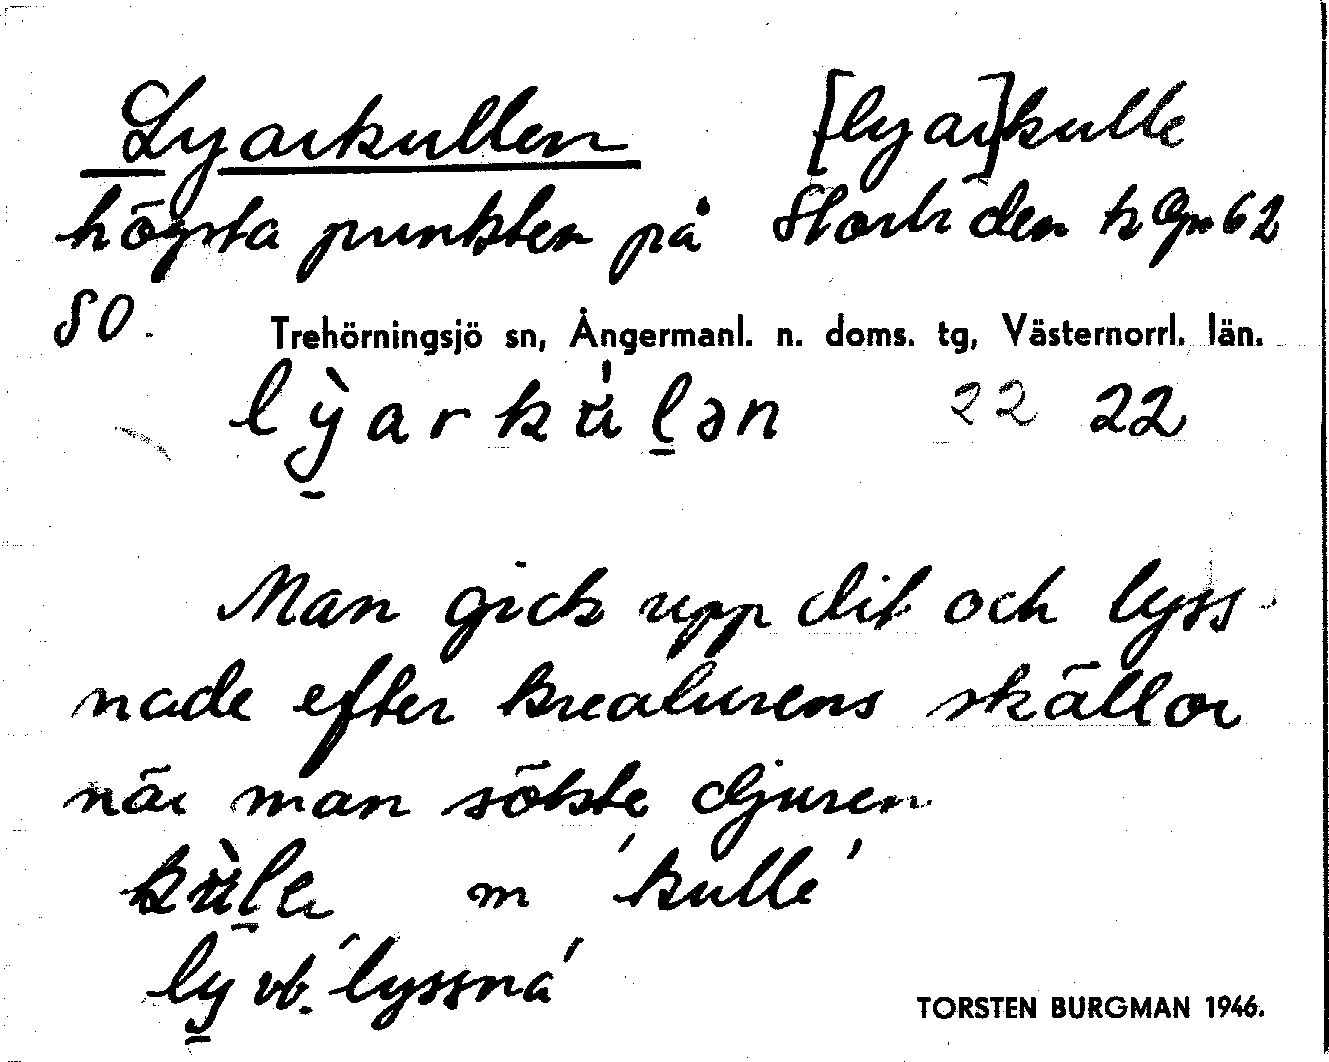 Lyarkullen [lyar]kulle
högsta punkten på Storliden k Gr 62
SO.
Trehörningsjö sn, Ångermanl. n. doms. tg, Västernorrl. län.
lỳarku̇́l̠ən 22 22
Man gick upp dit och lyss-
nade efter kreaturens skällor
när man sökte djuren
m 'kulle'
ly̠ vb. 'lyssna'
TORSTEN BURGMAN 1946.